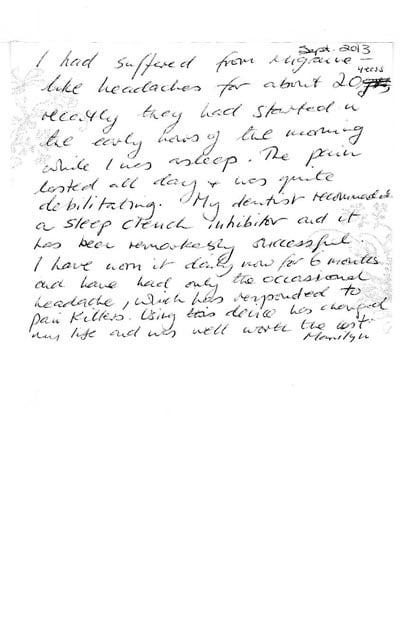 Sept. 2013
I had suffered from migraine-
like headaches for about 20 years
recently they had started in
the early hours of the morning
while I was asleep. The pain
lasted all day & was quite
debilitating. My dentist recommended
a sleep clench inhibitor and it
has been remarkably successful.
I have worn it daily now for 6 months
and have had only the occasional
headache, which has responded to
pain killers. Using this device has changed
my life and was well worth the cost.
Marilyn